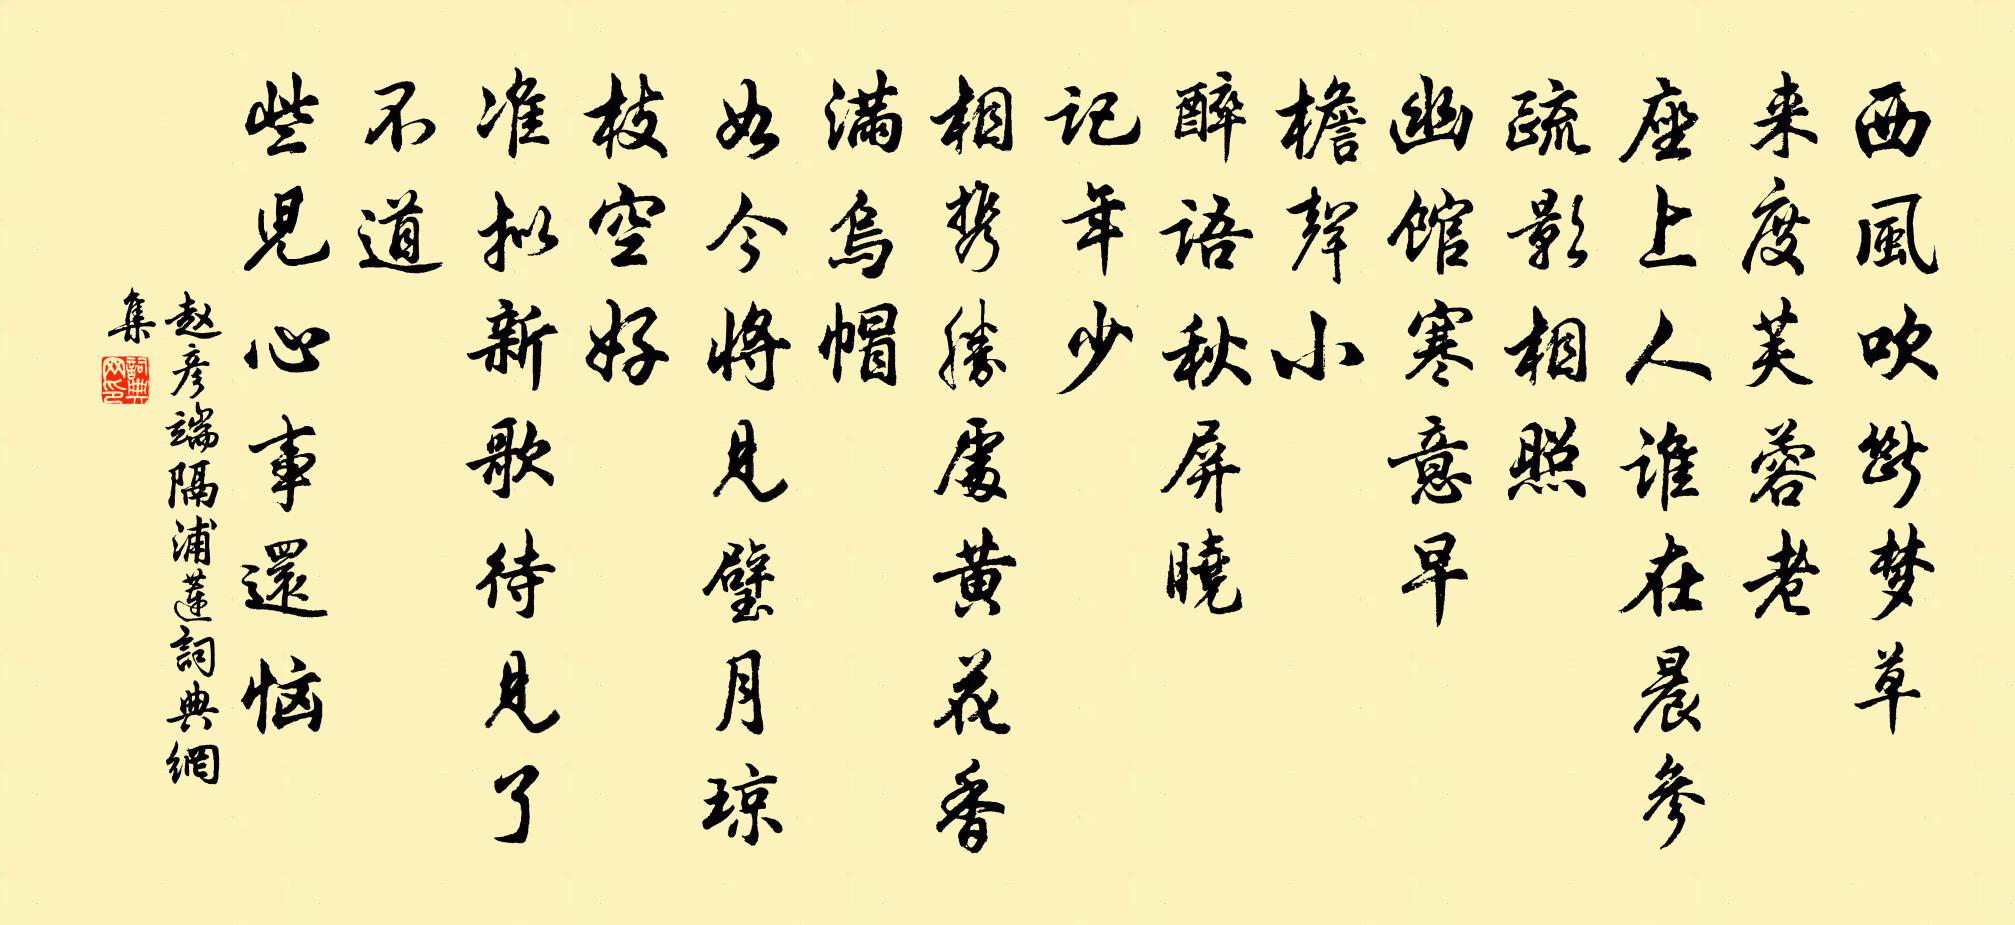 西風吹断梦草
来度芙蓉老
座上人谁在晨参
疏影相照
幽馆寒意早
檐聲小
醉语秋屏曉
记年少
相携勝處黄花香
满烏帽
如今将見璧月琼
枝空好
准拟新歌待見了
不道
些児心事還恼
赵彦端隔浦莲詞典網
集
詞典
网印